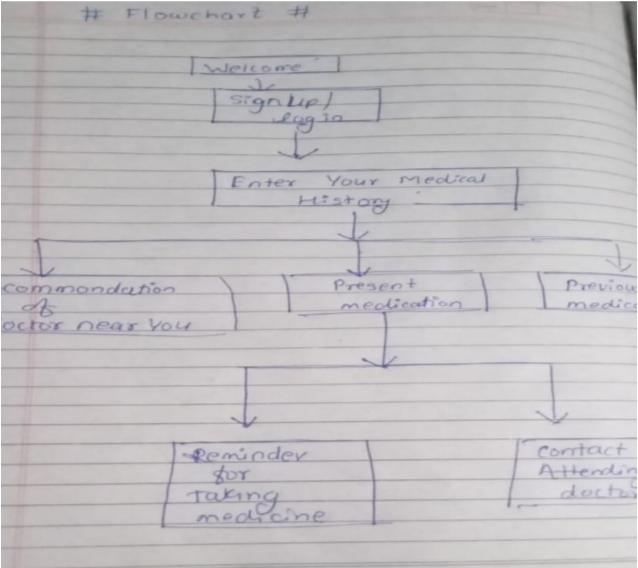 # Flowchart #
Welcome
Sign Up/
Log in
Enter Your Medical
History :
commondation
of
octor near You
Present
medication
Previou
medic
Reminder
for
Taking
medicine
Contact
Attendin
docto